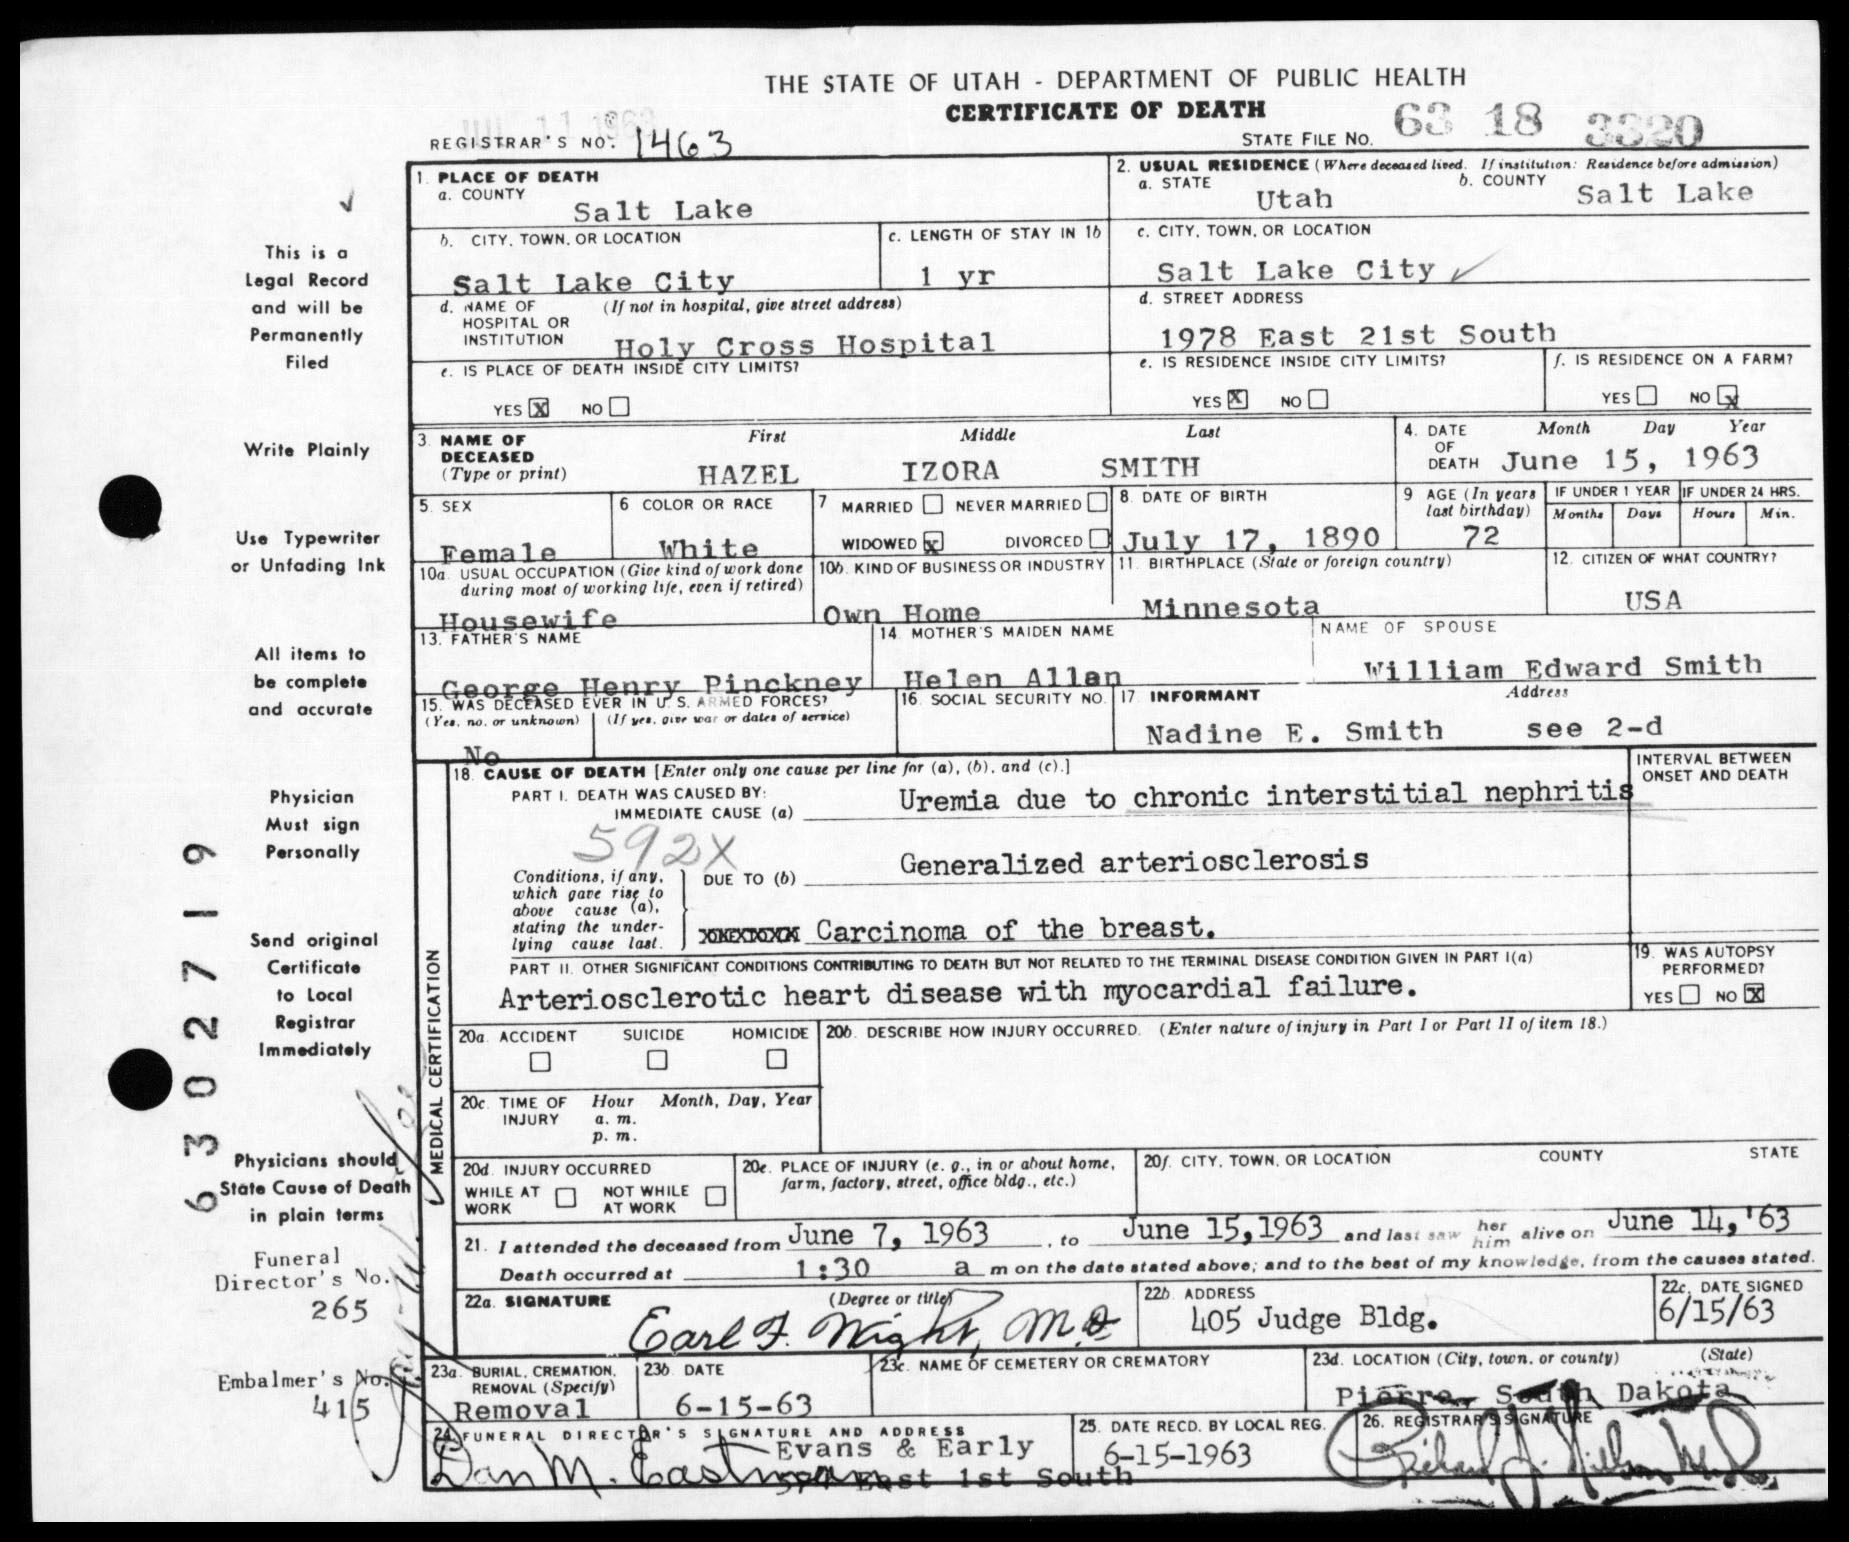 THE STATE OF UTAH - DEPARTMENT OF PUBLIC HEALTH
CERTIFICATE OF DEATH
JUL 11 1963
REGISTRAR'S NO. 1463
STATE FILE NO. 63 18 3320
1. PLACE OF DEATH
a. COUNTY
Salt Lake
2. USUAL RESIDENCE (Where deceased lived. If institution: Residence before admission)
a. STATE Utah
b. COUNTY Salt Lake
b. CITY, TOWN, OR LOCATION
Salt Lake City
c. LENGTH OF STAY IN 1b
1 yr
c. CITY, TOWN, OR LOCATION
Salt Lake City
d. NAME OF HOSPITAL OR INSTITUTION (If not in hospital, give street address)
Holy Cross Hospital
d. STREET ADDRESS
1978 East 21st South
e. IS PLACE OF DEATH INSIDE CITY LIMITS?
YES X NO
e. IS RESIDENCE INSIDE CITY LIMITS?
YES X NO
f. IS RESIDENCE ON A FARM?
YES NO X
3. NAME OF DECEASED (Type or print)
First Middle Last
HAZEL IZORA SMITH
4. DATE OF DEATH Month Day Year
June 15, 1963
5. SEX
Female
6 COLOR OR RACE
White
7 MARRIED NEVER MARRIED
WIDOWED X DIVORCED
8. DATE OF BIRTH
July 17, 1890
9 AGE (In years last birthday)
72
IF UNDER 1 YEAR
Months Days
IF UNDER 24 HRS.
Hours Min.
10a. USUAL OCCUPATION (Give kind of work done during most of working life, even if retired)
Housewife
10b. KIND OF BUSINESS OR INDUSTRY
Own Home
11. BIRTHPLACE (State or foreign country)
Minnesota
12. CITIZEN OF WHAT COUNTRY?
USA
13. FATHER'S NAME
George Henry Pinckney
14. MOTHER'S MAIDEN NAME
Helen Allen
NAME OF SPOUSE
William Edward Smith
15. WAS DECEASED EVER IN U.S. ARMED FORCES?
(Yes, no, or unknown) (If yes, give war or dates of service)
No
16. SOCIAL SECURITY NO.
17. INFORMANT Address
Nadine E. Smith see 2-d
MEDICAL CERTIFICATION
18. CAUSE OF DEATH [Enter only one cause per line for (a), (b), and (c).]
INTERVAL BETWEEN ONSET AND DEATH
PART I. DEATH WAS CAUSED BY:
IMMEDIATE CAUSE (a) Uremia due to chronic interstitial nephritis
592X
Conditions, if any, which gave rise to above cause (a), stating the underlying cause last.
DUE TO (b) Generalized arteriosclerosis
Carcinoma of the breast.
PART II. OTHER SIGNIFICANT CONDITIONS CONTRIBUTING TO DEATH BUT NOT RELATED TO THE TERMINAL DISEASE CONDITION GIVEN IN PART I(a)
Arteriosclerotic heart disease with myocardial failure.
19. WAS AUTOPSY PERFORMED?
YES NO X
20a. ACCIDENT SUICIDE HOMICIDE
20b. DESCRIBE HOW INJURY OCCURRED. (Enter nature of injury in Part I or Part II of item 18.)
20c. TIME OF INJURY Hour Month, Day, Year
a. m.
p. m.
20d. INJURY OCCURRED
WHILE AT WORK NOT WHILE AT WORK
20e. PLACE OF INJURY (e. g., in or about home, farm, factory, street, office bldg., etc.)
20f. CITY, TOWN, OR LOCATION COUNTY STATE
21. I attended the deceased from June 7, 1963, to June 15, 1963 and last saw her him alive on June 14, '63
Death occurred at 1:30 a m on the date stated above; and to the best of my knowledge, from the causes stated.
22a. SIGNATURE (Degree or title)
Earl F. Wight, M.D.
22b. ADDRESS
405 Judge Bldg.
22c. DATE SIGNED
6/15/63
23a. BURIAL, CREMATION, REMOVAL (Specify)
Removal
23b. DATE
6-15-63
23c. NAME OF CEMETERY OR CREMATORY
23d. LOCATION (City, town, or county) (State)
Pierre, South Dakota
24. FUNERAL DIRECTOR'S SIGNATURE AND ADDRESS
Dan M. Eastman
Evans & Early
East 1st South
25. DATE RECD. BY LOCAL REG.
6-15-1963
26. REGISTRAR'S SIGNATURE
This is a
Legal Record
and will be
Permanently
Filed
Write Plainly
Use Typewriter
or Unfading Ink
All items to
be complete
and accurate
Physician
Must sign
Personally
Send original
Certificate
to Local
Registrar
Immediately
Physicians should
State Cause of Death
in plain terms
Funeral
Director's No.
265
Embalmer's No.
415
6302719